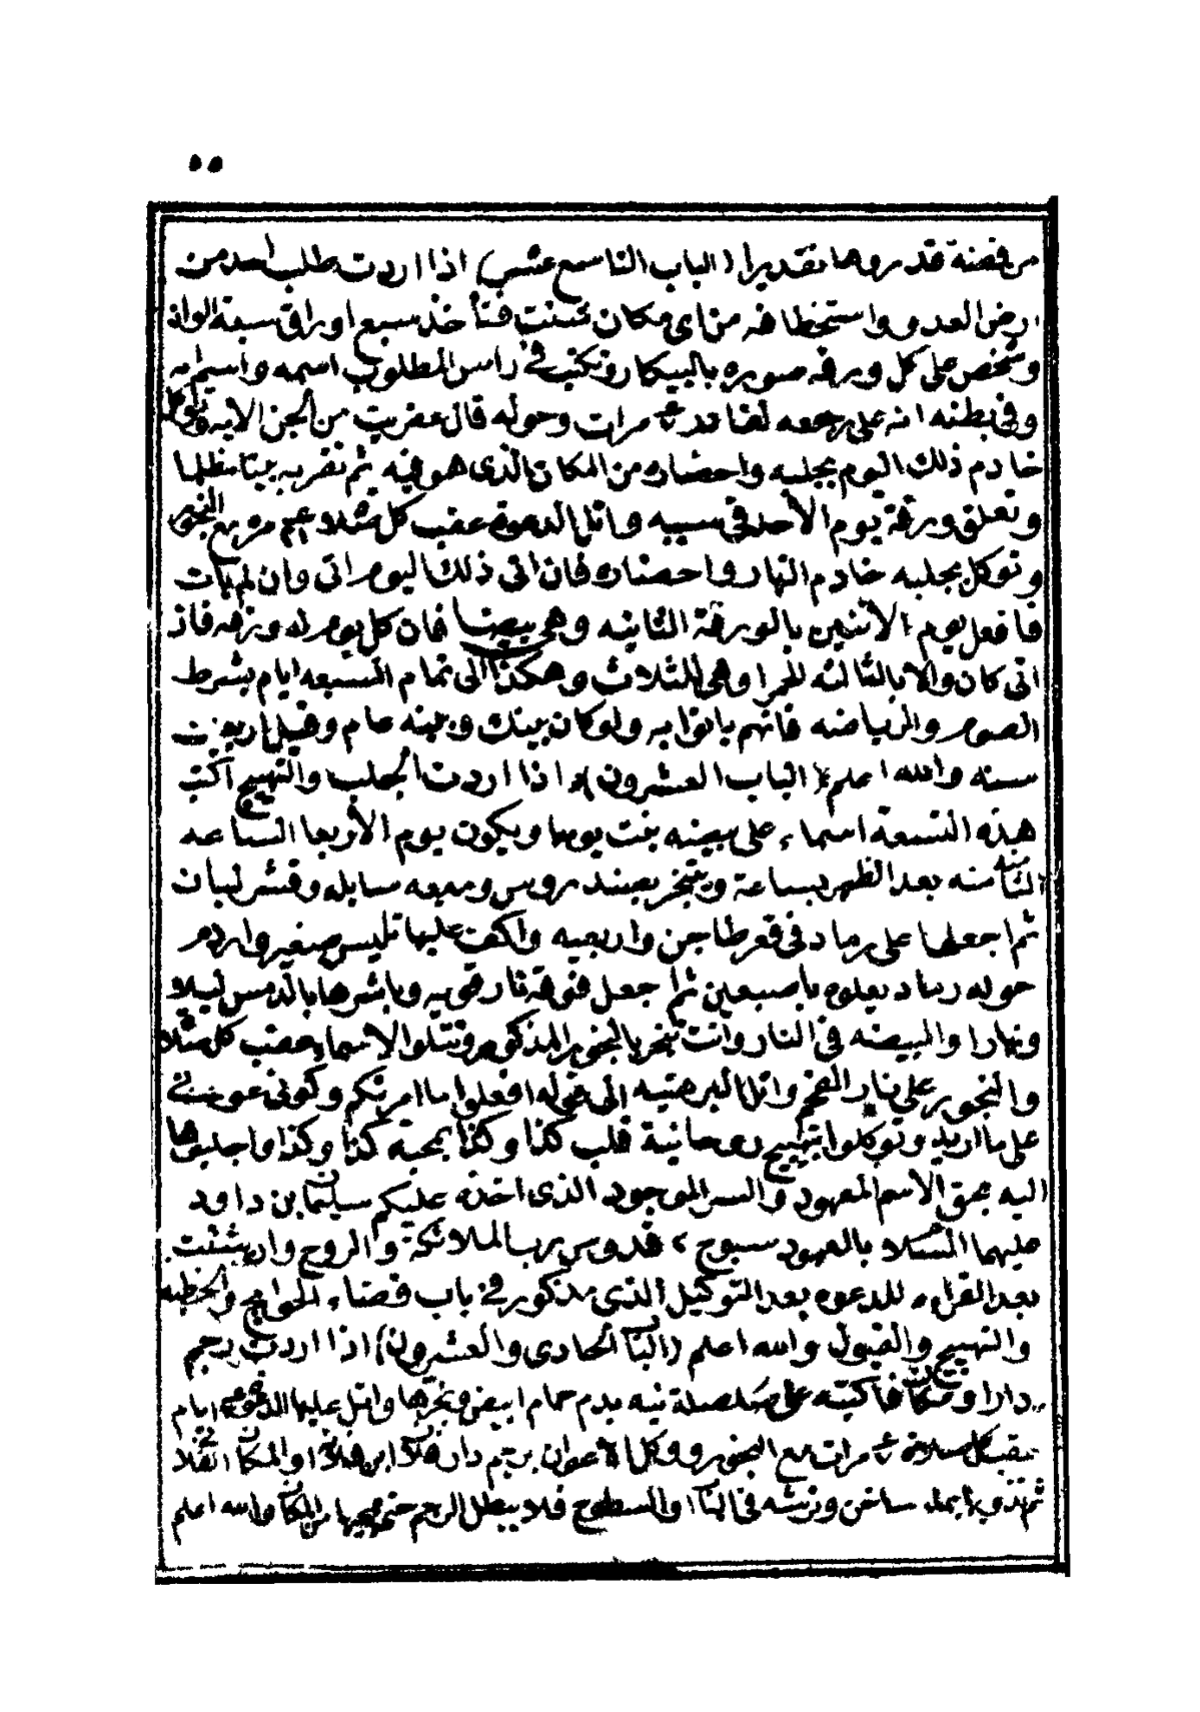 ٥٥
من فضة قدروها تقديرا (الباب التاسع عشر) اذا اردت طلب احد من
ارض العدو واستخطافه من اى مكان شئت فتأخذ سبع اوراق سبعة الوان
وشخص على كل ورقه صوره بالبيكار وتكتب فى راس المطلوب اسمه واسم امه
وفى بطنه انه على رجعه لقادر ٤ مرات وحوله قال عفريت من الجن الايه وتوكل
خادم ذلك اليوم بجلبه واحضاره من المكان الذى هو فيه ثم تقربه بيتا مظلما
وتعلق ورقة يوم الأحد فى سيبه واتل الدعوة عقب كل صلاه مره مع البخور
وتوكل بجلبه خادم النهار واحضاره فان اتى ذلك اليوم اتى وان لم يات
فافعل يوم الاثنين بالورقة الثانيه وهى بيضا فان كل يوم له ورقه فاذ
اتى كان والا بالثالثه الحمرا وهى للثلاث وهكذا الى تمام السبعه ايام بشرط
الصوم والرياضه فانهم ياتوا به ولو كان بينك وبينه عام وقيل اربعين
سنه والله اعلم (الباب العشرون) اذا اردت الجلب والتهييج اكتب
هذه التسعة اسماء على بيضه بنت يومها ويكون يوم الأربعا الساعه
الثامنه بعد الظهر بساعة ويتبخر بصندروس وميعه سايله وقشر لبان
ثم اجعلها على رماد فى قعر طاجن واربعيه واكف عليها تليس صغير واردم
حوله رماد يعلوه باصبعين ثم اجعل فوقه نار قويه وباشرها بالدمس ليلا
ونهارا والبيضه فى النار وانت تبخر بالبخور المذكور وتتلوا الاسماء عقب كل صلاه
والبخور على نار الفحم واتل البرهتيه الى قوله افعلوا ما امرتكم وكونى عونى
على ما اريد وتوكلوا بتهييج روحانية قلب كذا وكذا بمحبة كذا وكذا واجلبوها
اليه بحق الاسم المعهود والسر الموجود الذى اخذه عليكم سليمان بن داود
عليهما السلام بالعهود سبوح ، قدوس رب الملائكة والروح وان شئت
بعد القراءه للدعوه بعد التوكيل الذى مذكور فى باب قضاء الحوايج والخطبه
والتهييج والقبول والله اعلم (الباب الحادى والعشرون) اذا اردت رجم
دارا ومكان فاكتبه على صلصلة نيه بدم حمام ابيض وبخرها واتل عليها الدعوه ايام
عقب كل صلاه ٤ مرات مع البخور ووكل الأعوان برجم دار فلان ابن فلان او المكان الفلانى
ثم تذوبها بماء ساخن وترشه فى الباب والسطوح فلا يبطل الرجم حتى من المكان والله اعلم